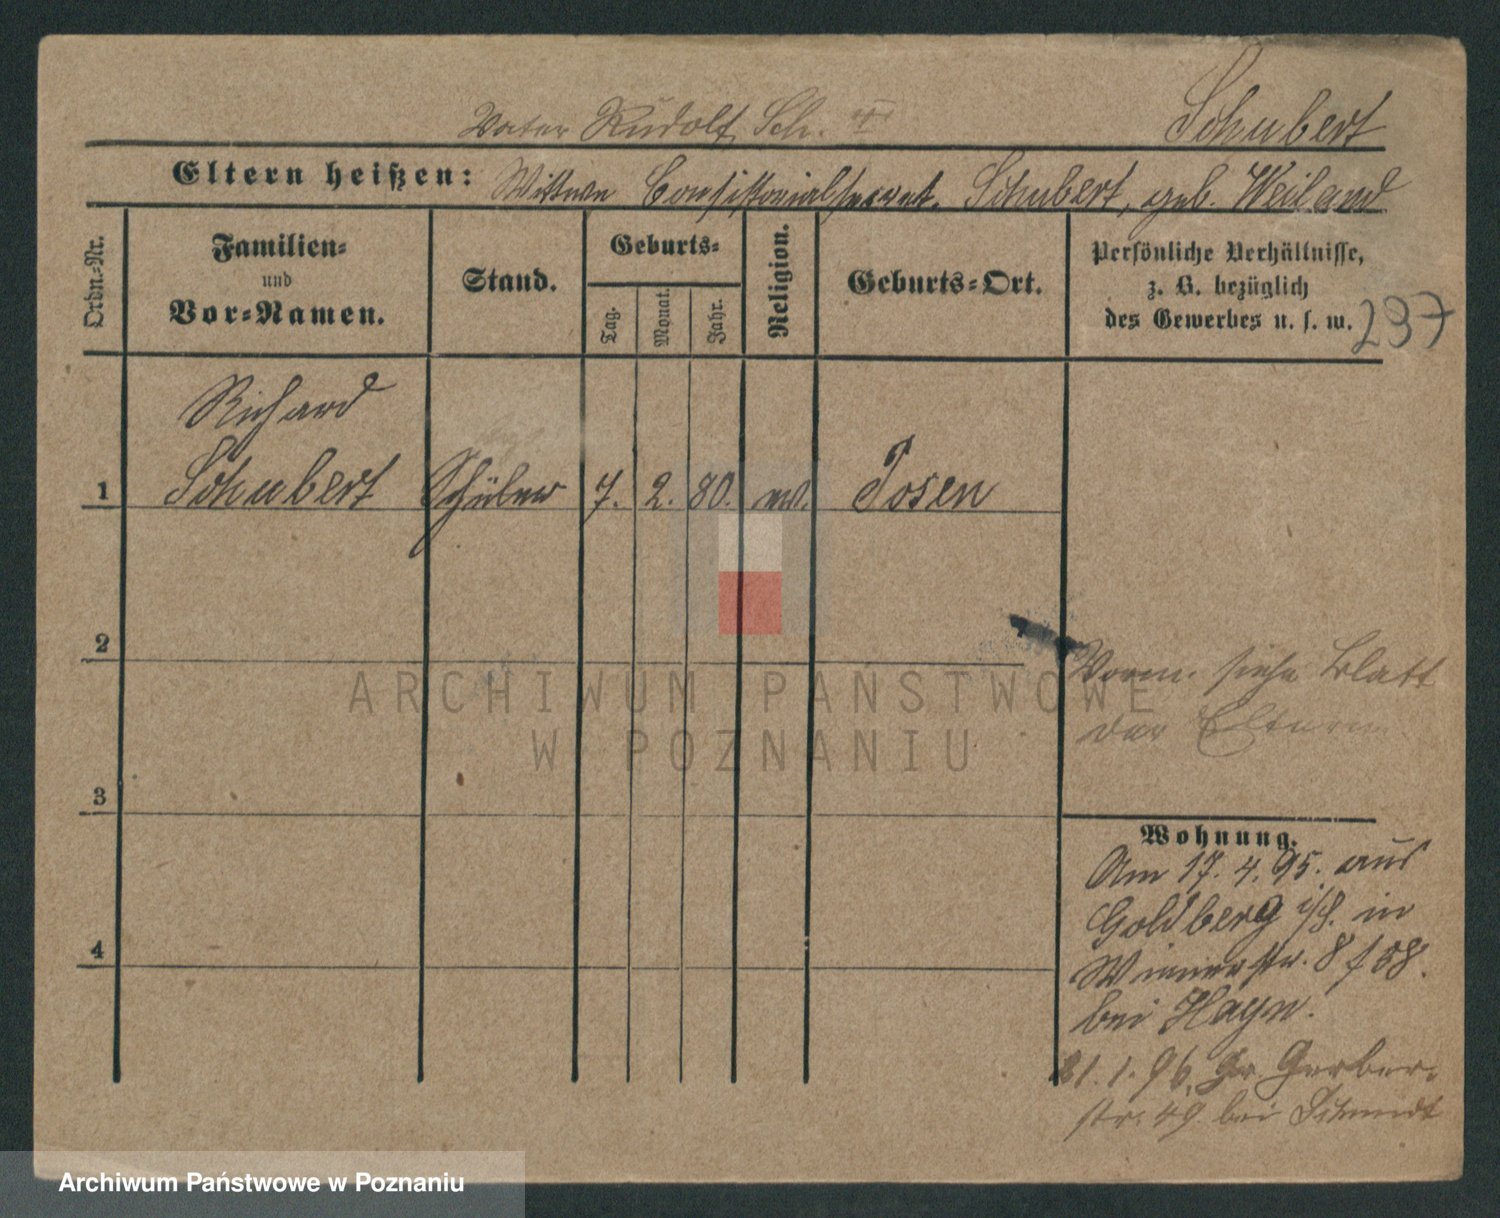 Schubert
Vater Rudolf Sch. II
Eltern heißen: Wittwe Consistorialsecret. Schubert, geb. Weiland
Ordn.-Nr.
Familien-
und
Vor-Namen.
Stand.
Geburts-
Tag.
Monat.
Jahr.
Religion.
Geburts-Ort.
Persönliche Verhältnisse,
z. B. bezüglich
des Gewerbes u. s. w.
237
Richard
1 Schubert Schüler 7. 2. 80. ev. Posen
2
3
4
Vorm. siehe Blatt
der Eltern
Wohnung.
Am 17. 4. 95. aus
Goldberg i/S. in
Wienerstr. 8 f 58.
bei Hayn.
21. 1. 96. Gr. Gerber-
str. 49 bei Schmidt
ARCHIWUM PAŃSTWOWE
W POZNANIU
Archiwum Państwowe w Poznaniu